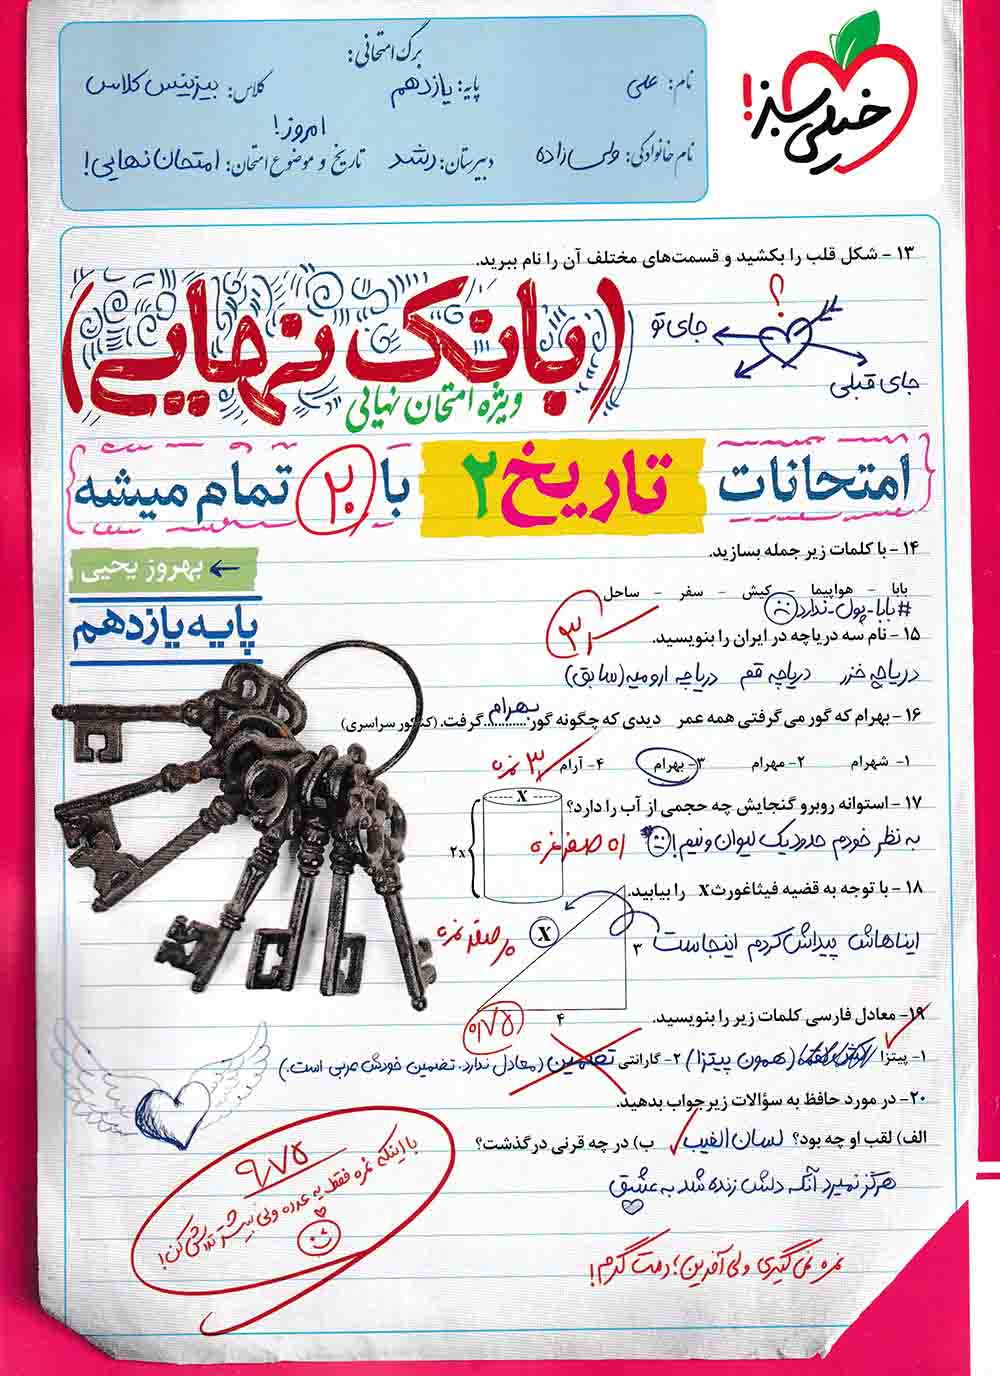 خیلی سبز!
برگ امتحانی:
نام: علی
پایه: یازدهم
کلاس: بیزینس کلاس
نام خانوادگی: ولی زاده
دبیرستان: رشد
تاریخ و موضوع امتحان: امروز! امتحان نهایی!
۱۳ - شکل قلب را بکشید و قسمت‌های مختلف آن را نام ببرید.
؟
جای تو
جای قبلی
(بانک نهایی)
ویژه امتحان نهایی
امتحانات تاریخ ۲ با ۲۰ تمام میشه
← بهروز یحیی
پایه یازدهم
۱۴ - با کلمات زیر جمله بسازید.
بابا - هواپیما - کیش - سفر - ساحل
#بابا-پول-ندارد
۱۵ - نام سه دریاچه در ایران را بنویسید.
۳
دریاچه خزر دریاچه قم دریاچه ارومیه (سابق)
۱۶ - بهرام که گور می‌گرفتی همه عمر دیدی که چگونه گور ...بهرام... گرفت. (کنکور سراسری)
۱- شهرام ۲- مهرام ۳- بهرام ۴- آرام
۳ نمره
۱۷ - استوانه روبرو گنجایش چه حجمی از آب را دارد؟
X
۲x
به نظر خودم حدود یک لیوان و نیم!
صفر نمره
۱۸ - با توجه به قضیه فیثاغورث X را بیابید.
X
۳
۴
ایناهاش پیداش کردم اینجاست
صفر نمره
۰/۷۵
۱۹- معادل فارسی کلمات زیر را بنویسید.
۱- پیتزا (همون پیتزا) ۲- گارانتی تضمین (معادل ندارد. تضمین خودش عربی است.)
۲۰- در مورد حافظ به سؤالات زیر جواب بدهید.
الف) لقب او چه بود؟ لسان الغیب ب) در چه قرنی درگذشت؟
هرگز نمیرد آنکه دلش زنده شد به عشق
۹/۷۵
با اینکه نمره فقط یه عدده ولی بیشتر تلاش کن!
نمره نمی‌گیری ولی آفرین؛ دمت گرم!